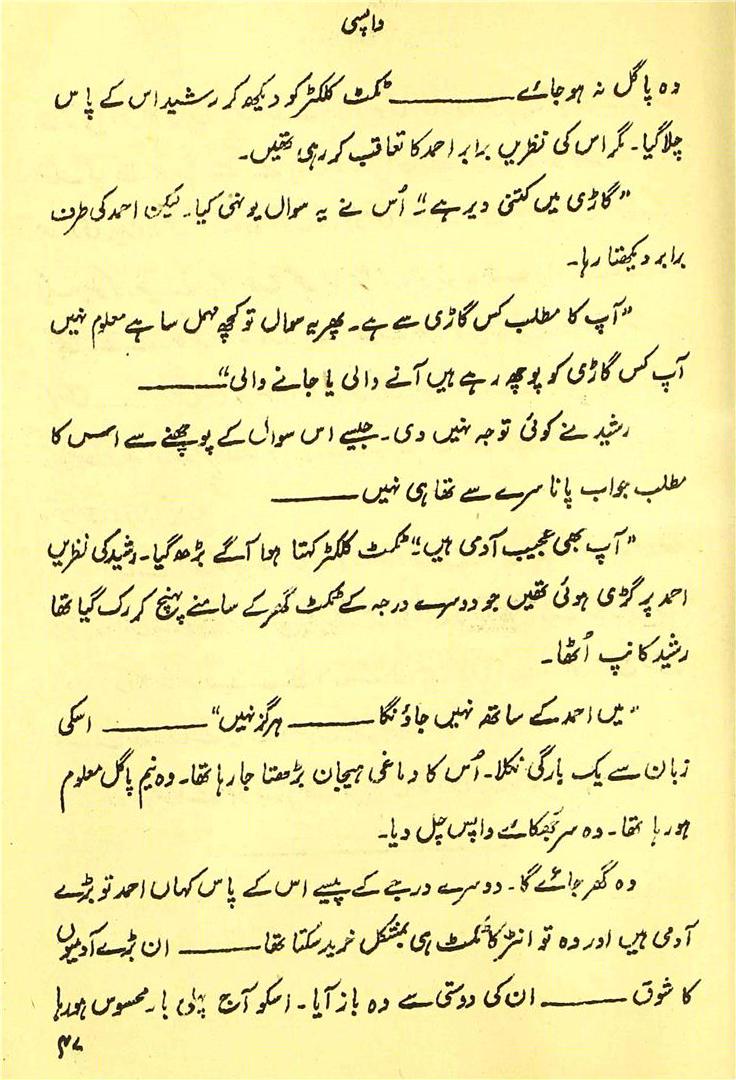 واپسی
وہ پاگل نہ ہوجائے ـــــــــــ ٹکٹ کلکٹر کو دیکھ کر رشید اس کے پاس
چلا گیا۔ مگر اس کی نظریں برابر احمد کا تعاقب کر رہی تھیں۔
”گاڑی میں کتنی دیر ہے“۔ اُس نے یہ سوال یونہی کیا۔ لیکن احمد کی طرف
برابر دیکھتا رہا۔
”آپ کا مطلب کس گاڑی سے ہے۔ پھر یہ سوال تو کچھ مہمل سا ہے معلوم نہیں
آپ کس گاڑی کو پوچھ رہے ہیں آنے والی یا جانے والی“ ـــــــــــ
رشید نے کوئی توجہ نہیں دی۔ جیسے اس سوال کے پوچھنے سے اس کا
مطلب جواب پانا سرے سے تھا ہی نہیں ـــــــــــ
”آپ بھی عجیب آدمی ہیں“۔ ٹکٹ کلکٹر کہتا ہوا آگے بڑھ گیا۔ رشید کی نظریں
احمد پر گڑی ہوئی تھیں جو دوسرے درجہ کے ٹکٹ گھر کے سامنے پہنچ کر رک گیا تھا
رشید کانپ اُٹھا۔
”میں احمد کے ساتھ نہیں جاؤنگا ـــــــــــ ہرگز نہیں“ ـــــــــــ اسکی
زبان سے یک بارگی نکلا۔ اُس کا دماغی ہیجان بڑھتا جا رہا تھا۔ وہ نیم پاگل معلوم
ہو رہا تھا۔ وہ سر جھکائے واپس چل دیا۔
وہ گھر جائے گا۔ دوسرے درجے کے پیسے اس کے پاس کہاں احمد تو بڑے
آدمی ہیں اور وہ تو انٹر کا ٹکٹ ہی بمشکل خرید سکتا تھا ـــــــــــ ان بڑے آدمیوں
کا شوق ـــــــــــ ان کی دوستی سے وہ باز آیا۔ اسکو آج پہلی بار محسوس ہو رہا
۳۷